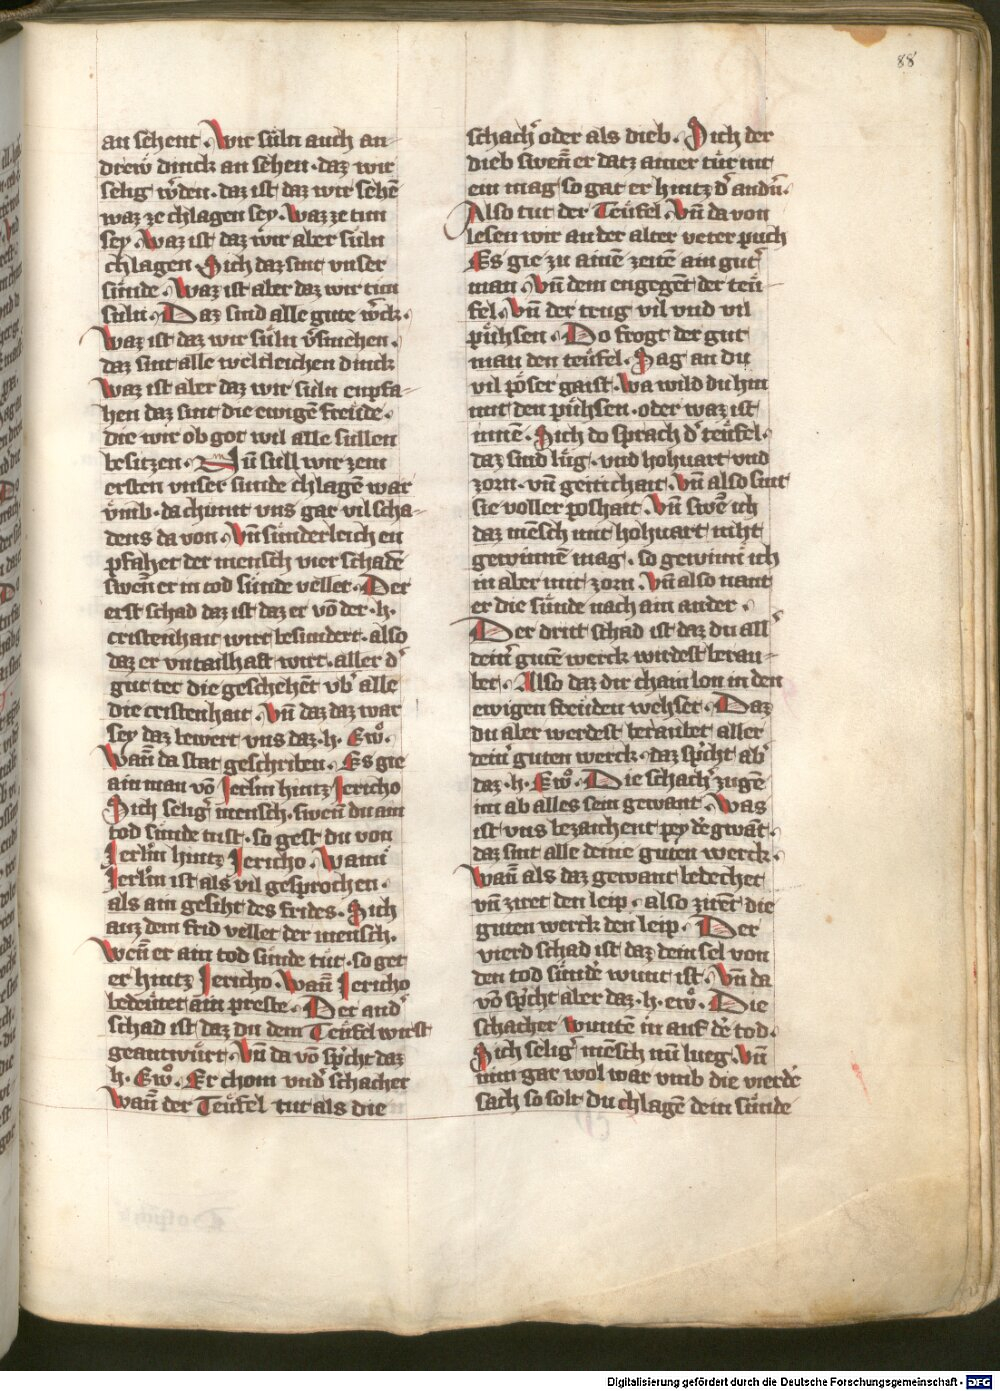 88
an sehent · Wir süln auch an
drew dinck an sehen · daz wir
selig w̉den · daz ist daz wir sehē
waz ze chlagen sey · Waz ze tun
sey · Waz ist daz wir aber süln
chlagen · Sich daz sint vnser
sünde · Waz ist aber daz wir tun
süln · Daz sind alle gute w̉ck ·
Waz ist daz wir süln v̉suchen ·
daz sint alle weltleichen dinck
Waz ist aber daz wir süln enpfa-
hen daz sint die ewigē freude ·
die wir ob got wil alle süllen
besitzen · Nū süll wir zem
ersten vnser sünde chlagē war
v̈mb · da chümt vns gar vil scha-
dens da von · Vn̄ sünderleich en
pfahet der mensch vier schadē
swen̄ er in tod sünde vellet · Der
erst schad daz ist daz er vō der · h ·
cristenhait wirt besündert · also
daz er vntailhaft wirt · aller d̉
gut tet die geschehent vb̉ alle
die cristenhait · Vn̄ daz daz war
sey daz bewert vns daz · h · Ew̉ ·
Wan̄ da stat geschriben · Es gie
ain man vō Jerl̄m hintz Jericho
Sich selig̉ mensch · swen̄ du ain
tod sünde tust · so gest du von
Jerl̄m hintz Jericho · Wann
Jerl̄m ist als vil gesprochen ·
als ain gesiht des frides · Sich
auz dem frid vellet der mensch ·
Wen̄ er ain tod sünde tüt · so get
er hintz Jericho · Wan̄ Jericho
bedeutet ain preste · Der and̉
schad ist daz du dem Teufel wirst
geantwürt · Vn̄ da vō sp̉cht daz
h · Ew̉ · Er chom vnd̉ schacher
Wan̄ der Teufel tut als die
schach̉ oder als dieb · Sich der
dieb swen̄ er datz ainer tür nit
ein mag so gat er hintz d̉ andn̉ ·
Also tut der Teufel · Vn̄ da von
lesen wir an der alter veter puch
Es gie zu ainē zeitē ain gut̉
man · Vn̄ dem engegēt der teu-
fel · Vn̄ der trug vil vnd vil
pühsen · Do frogt der gut
man den teufel · Sag an du
vil pöser gaist · Wa wild du hin
mit den pühsen · oder waz ist
innē · Sich do sprach d̉ teufel ·
daz sind lüg · vnd hohuart vnd
zorn · vn̄ geitichait · Vn̄ also sint
sie voller poshait · Vn̄ swē ich
daz mēsch mit hohuart niht
gewinnē mag · so gewinn ich
in aber mit zorn · Vn̄ also nant
er die sünde nach ain ander ·
Der dritt schad ist daz du all̉
dein̉ gutē werck wirdest berau-
bet · Also daz dir chain lon in den
ewigen freuden wehset · Daz
du aber werdest beraubet aller
dein̉ guten werck · daz sp̉cht ab̉
daz · h · Ew̉ · Die schach̉ zugē
im ab alles sein gewant · Was
ist vns bezaichent pey dē gwāt ·
daz sint alle deine guten werck ·
Wan̄ als daz gewant bedechet
vn̄ ziret den leip · also zirēt die
guten werck den leip · Der
vierd schad ist daz dein sel von
den tod sünde wunt ist · Vn̄ da
vō sp̉cht aber daz · h · ew̉ · Die
schacher wuntē in auf dē tod ·
Sich selig̉ mēsch nū lueg · Vn̄
nim gar wol war vmb die vierdē
sach so solt du chlagē dein sünde
Digitalisierung gefördert durch die Deutsche Forschungsgemeinschaft - DFG